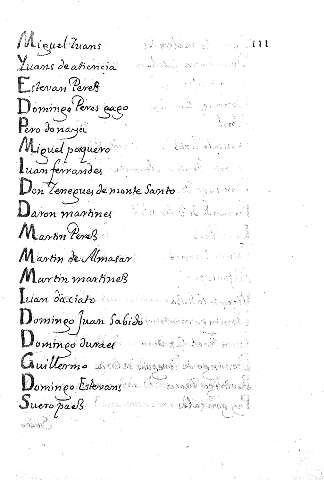 111
Miguel Iuans
Yuans de atiencia
Estevan Pereß
Domingo Peres gago
Pero do naya
Miguel poquero
Iuan ferrandes
Don Tenegues de monte Santo
Daron martines
Martin Pereß
Martin de Almasar
Martin martineß
Iuan daciato
Domingo Juan Sabido
Domingo duraes
Guillermo
Domingo Estevans
Suero paeß